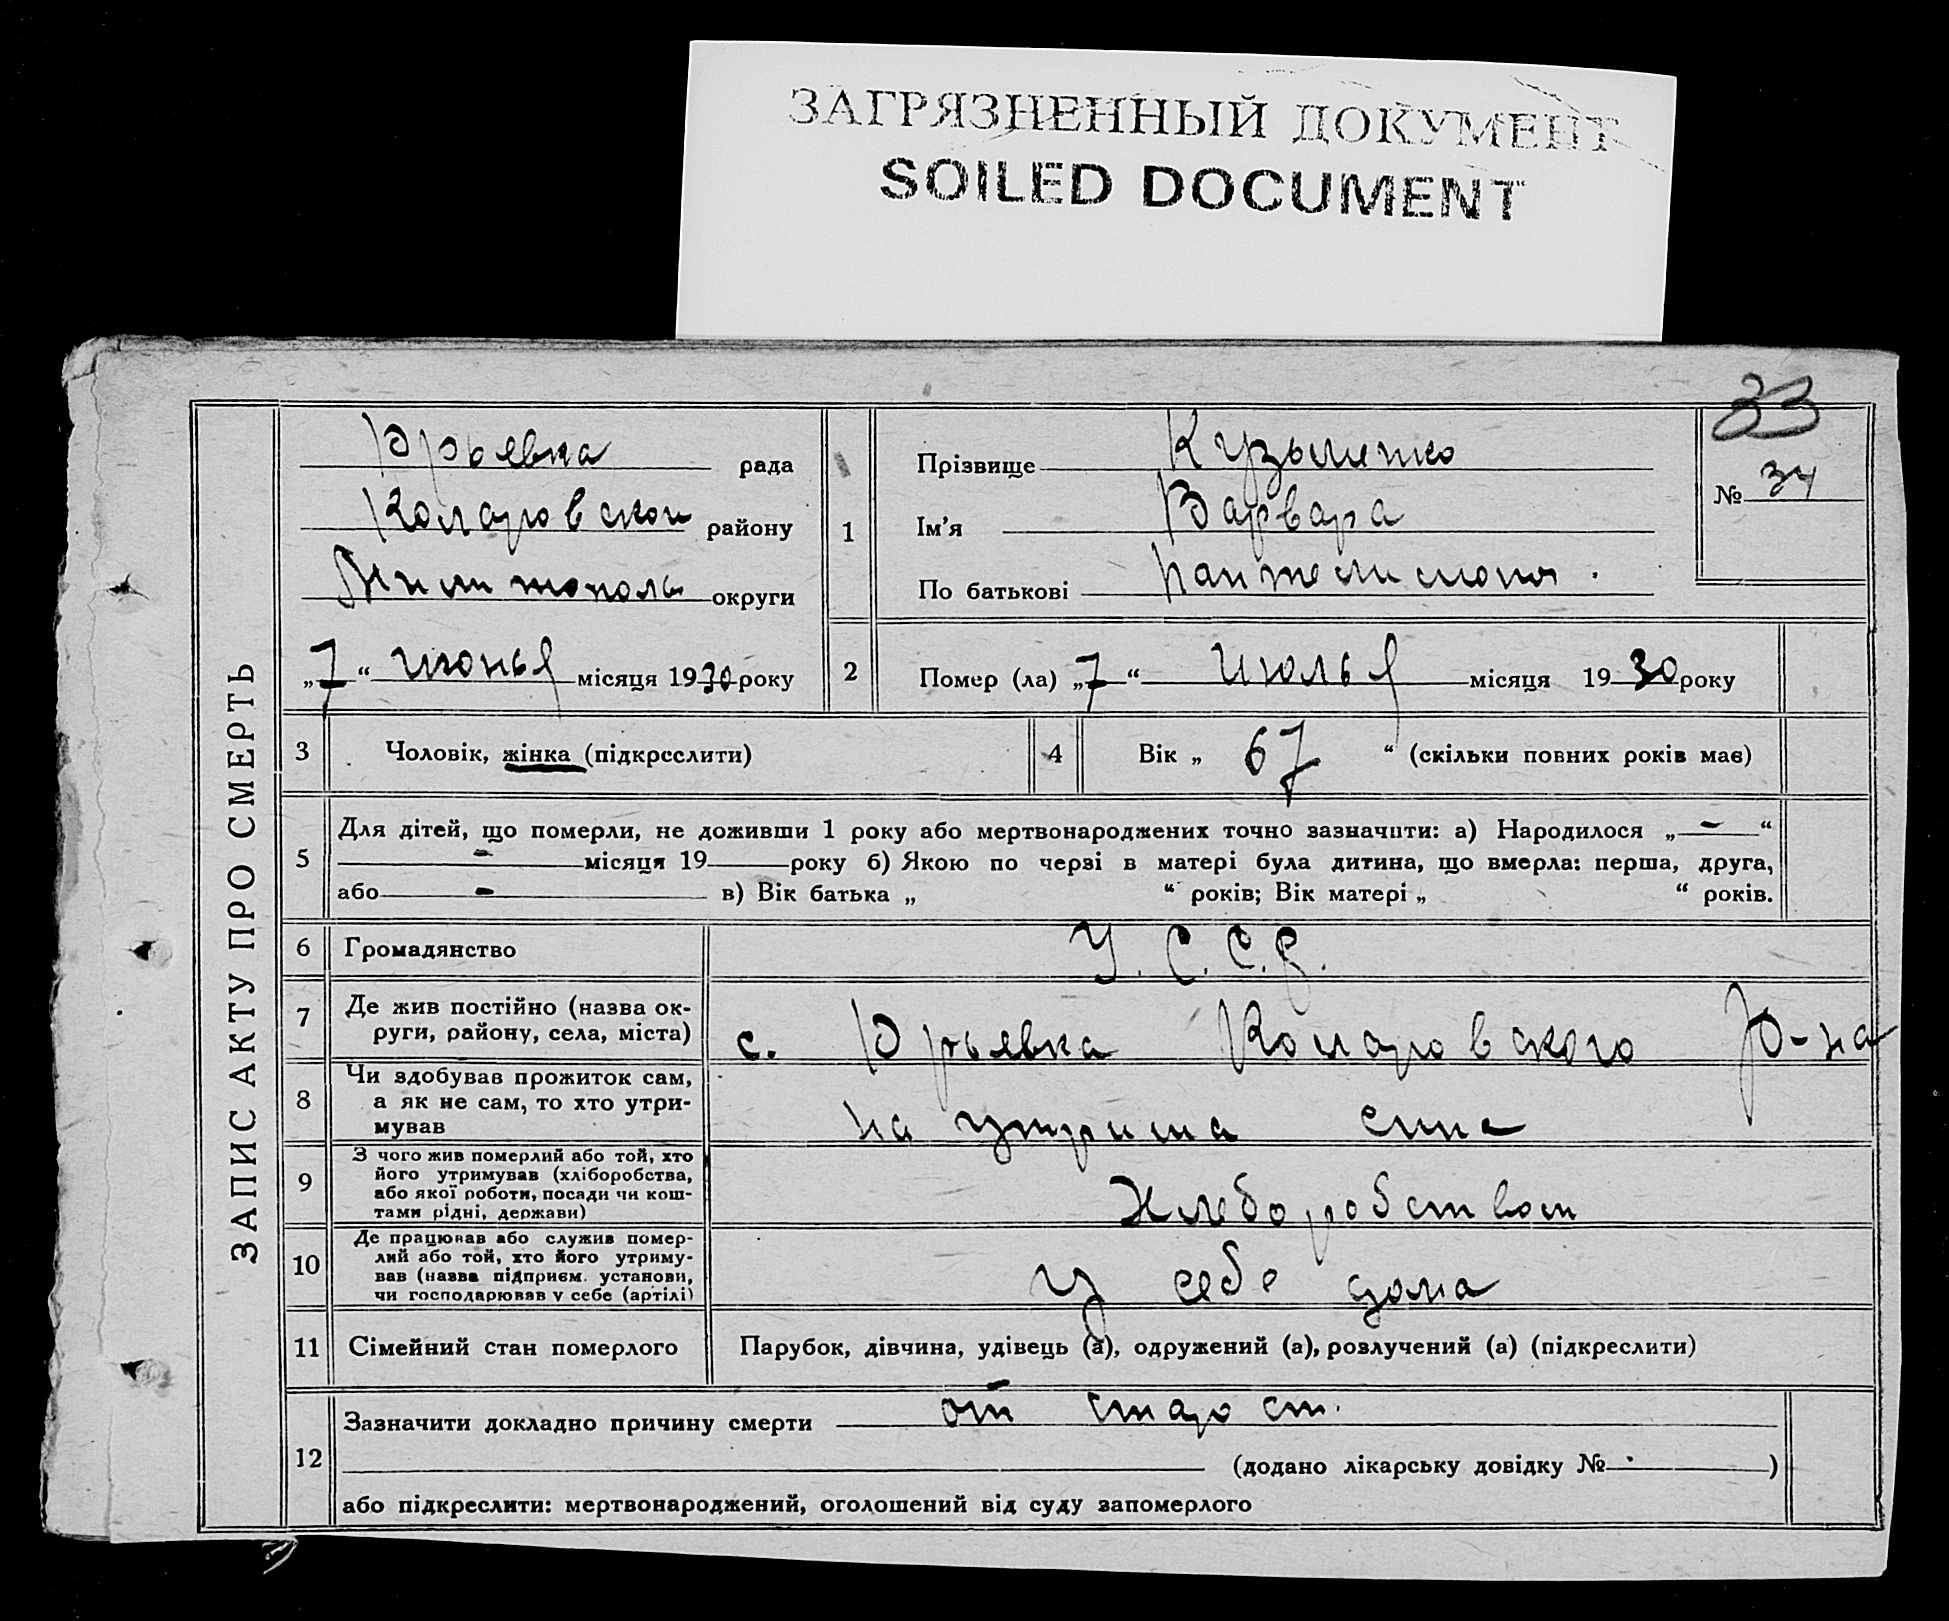 ЗАГРЯЗНЕННЫЙ ДОКУМЕНТ
SOILED DOCUMENT
33
ЗАПИС АКТУ ПРО СМЕРТЬ
Юрьевка рада
Коларовской району
округи
„7“ июнья місяця 1930 року
1
Прізвище Кузьменко
Ім'я Варвара
По батькові
№ 34
2 Помер (ла) „7“ июлья місяця 1930 року
3 Чоловік, жінка (підкреслити)
4 Вік „67“ (скільки повних років має)
5 Для дітей, що померли, не доживши 1 року або мертвонароджених точно зазначити: а) Народилося „-“
- місяця 19 року б) Якою по черзі в матері була дитина, що вмерла: перша, друга,
або - в) Вік батька „ “ років; Вік матері „ “ років.
6 Громадянство У.С.С.Р.
7 Де жив постійно (назва ок-
руги, району, села, міста) с. Юрьевка Коларовского Р-на
8 Чи здобував прожиток сам,
а як не сам, то хто утри-
мував на сина
9 З чого жив померлий або той, хто
його утримував (хліборобства,
або якої роботи, посади чи кош-
тами рідні, держави) Хлеборобством
10 Де працював або служив помер-
лий або той, хто його утриму-
вав (назва підприєм. установи,
чи господарював у себе (артілі) у себе дома
11 Сімейний стан померлого Парубок, дівчина, удівець (а), одружений (а), розлучений (а) (підкреслити)
12 Зазначити докладно причину смерти от старост.
(додано лікарську довідку № )
або підкреслити: мертвонароджений, оголошений від суду запомерлого